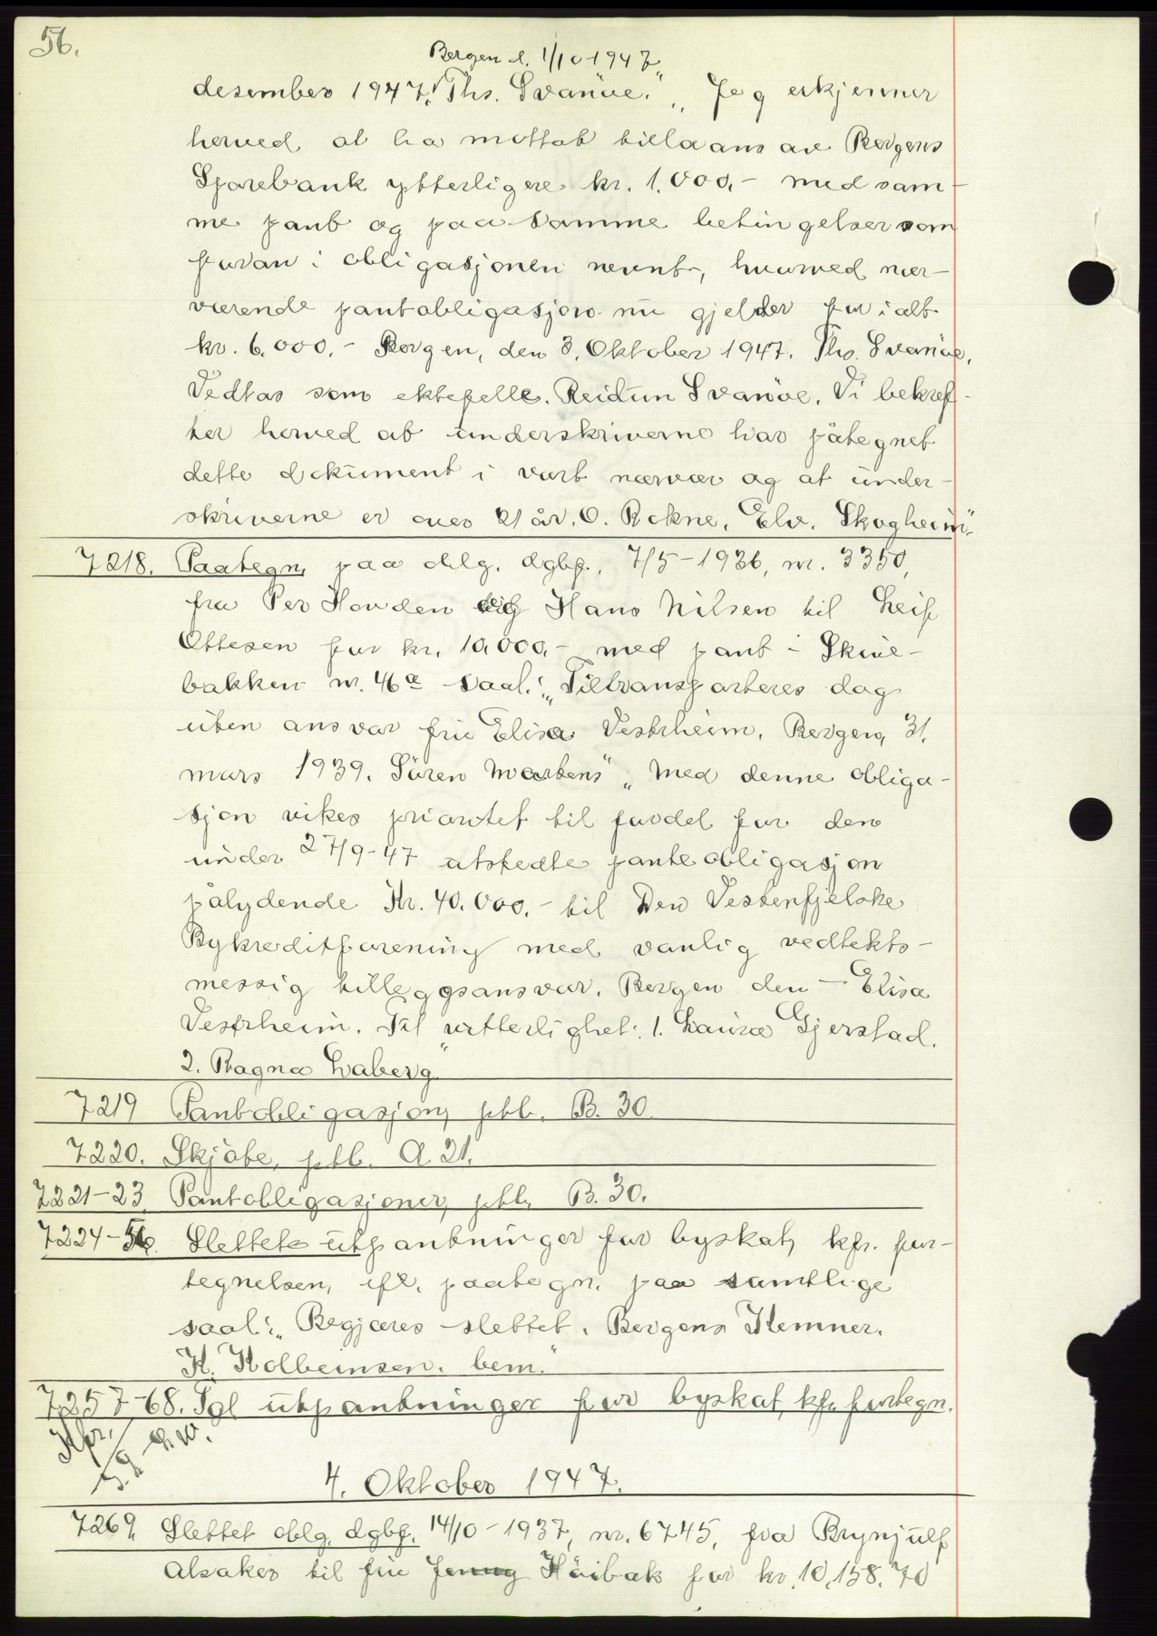 56.
Bergen d. 1/10 1947
desember 1947. Ths. Svanöe." „Jeg erkjenner
herved at ha mottat tillaans av Bergens
Sparebank ytterligere kr. 1.000,- med sam-
me pant og paa samme betingelser som
foran i obligasjonen nevnt, hvorved nær-
værende pantobligasjon nu gjelder for ialt
kr. 6.000.- Bergen, den 3. Oktober 1947. Ths. Svanöe.
Vedtas som ektefelle. Reidun Svanöe. Vi bekref-
ter herved at underskriverne har påtegnet
dette dokument i vort nærvær og at under-
skriverne er over 21 år. O. Rekne. Elv. Skogheim"
7218. Paategn. paa oblg. dgbf. 7/5-1936, nr. 3350,
fra Per Hovden og Hans Nilsen til Leif
Ottesen for kr. 10.000.- med pant i Skive-
bakken nr. 46a saal.: „Tiltransporteres dags
uten ansvar fru Elisa Vestrheim. Bergen, 31.
mars 1939. Sören Martens" „Med denne obliga-
sjon vikes prioritet til fordel for den
under 27/9-47 utstedte panteobligasjon
pålydende Kr. 40.000.- til Den Vestenfjelske
Bykreditforening med vanlig vedtekts-
messig tilleggsansvar. Bergen den - Elisa
Vestrheim. Til vitterlighet: 1. Laura Gjerstad.
2. Ragna Laberg."
7219 Pantobligasjon, ptb. B. 30
7220. Skjöte, ptb. A 21.
7221-23 Pantobligasjoner, ptb. B. 30.
7224-56. Slettet utpantninger for byskat, kfr. for-
tegnelsen, ifl. paategn. paa samtlige
saal.: „Begjæres slettet. Bergens Kemner.
K. Kolbeinsen. bem."
7257-68. Tgl utpantninger for byskat, kfr. fortegn.
Kfr.
4. Oktober 1947.
7269. Slettet oblg. dgbf. 14/10-1937, nr. 6745, fra Brynjulf
Alsaker til fru Jenny Höibak for kr. 10.158.70